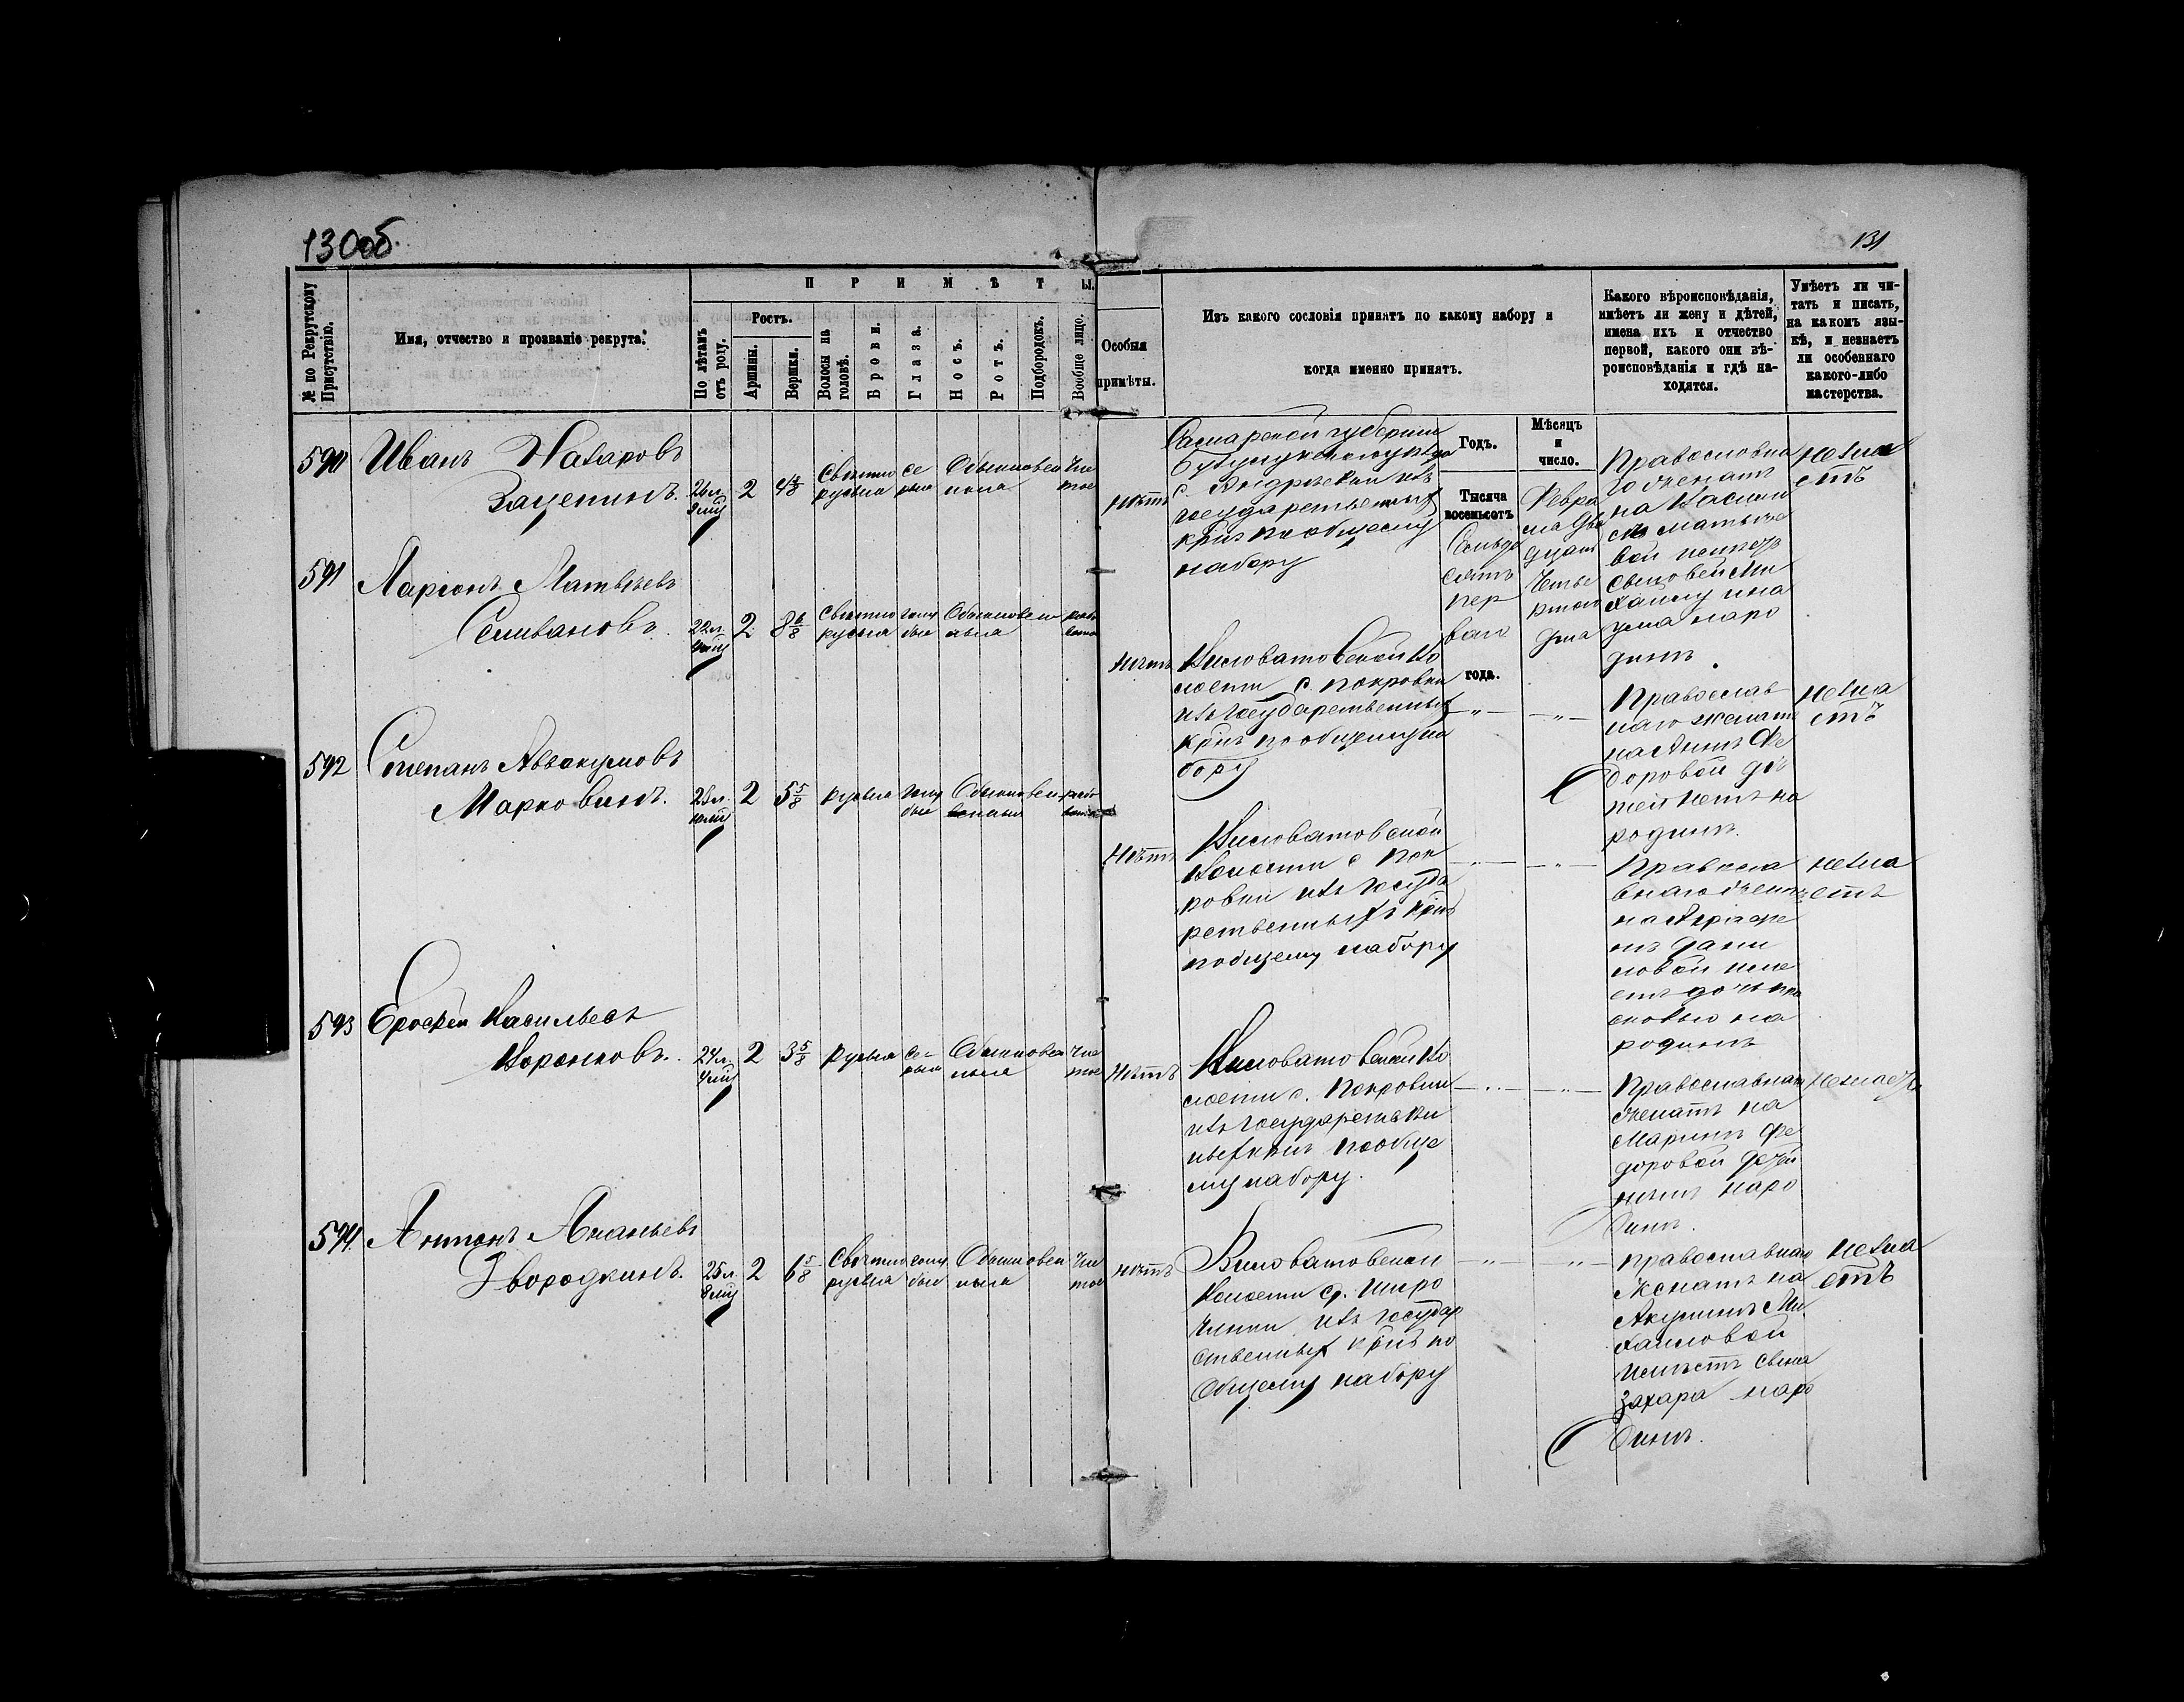 130об.
131
№ по Рекрутскому Присутствію.
Имя, отчество и прозваніе рекрута.
ПРИМѢТЫ.
По лѣтамъ отъ роду.
Ростъ.
Аршины.
Вершки.
Волосы на головѣ.
Брови.
Глаза.
Носъ.
Ротъ.
Подбородокъ.
Вообще лицо.
Особыя
примѣты.
Изъ какого сословія принятъ по какому набору и
когда именно принятъ.
Какого вѣроисповѣданія,
имѣетъ ли жену и дѣтей,
имена ихъ и отчество
первой, какого они вѣ-
роисповѣданія и гдѣ на-
ходятся.
Умѣетъ ли чи-
тать и писать,
на какомъ язы-
кѣ, и незнаетъ
ли особеннаго
какого-либо
мастерства.
590 Иванъ Назаровъ
Зацепинъ. 2
Свѣтло русыя
сѣрыя
Обыкновен ныя
Чистое
нѣтъ
Самарской губерніи
государственныхъ
набору
Годъ.
Тысяча
восемьсотъ
Семьде
сятъ
пер
ваго
года.
Мѣсяцъ
и
число.
Февра
ля Два
дцать
Четве
ртаго
дня
Православна
го женатъ
на Васили
сынов ей Ми
хайлу
дин.
незна
етъ
591 Ларіонъ Матвѣевъ
Селивановъ. 2 8 6/8
Свѣтло русыя
голу бые
Обыкновен ныя
нѣтъ
Виловатовской во
лости с. Покровки
изъ государственныхъ
крнъ по общему на
бору
Православ
наго женатъ
на Аннѣ Фе
доровой дѣ
тей нетъ на
родинѣ.
незна
етъ
592 Степанъ Аввакумовъ
Марковинъ. 2 5 5/8
русыя
голу бые
Обыкновен ныя
Нѣтъ
Виловатовской
волости с Пок
ровки изъ госуда
рственныхъ крнъ
по общему набору
Правосла
внаго женатъ
на Аграфе
нѣ Дани
ловой име
етъ дочь Пра
сковью на
родинѣ
незна
етъ
593 Ерофей Васильевъ
Воронковъ. 24 л. 2 3 5/8
русыя
сѣ- рыя
Обыкновен ныя
чис тое
Нѣтъ
Виловатовской во
лости с. Покровки
изъ государстве
ныхъ крнъ по обще
му набору.
Православнаго
женатъ на
Маринѣ Фе
доровой детей
нѣтъ наро
динѣ.
594. Антонъ Ананьевъ
Звородкинъ. 25 л. 2 6 5/8
Свѣтло русыя
голу бые
Обыкновен ныя
Чис тое
нѣтъ
Виловатовской
волости д. Широ
чинки изъ государ
ственныхъ крнъ по
общему набору
православнаго
женатъ на
Акулинѣ Ми
хайловой
имѣетъ сына
Захара наро
динѣ.
незна
етъ